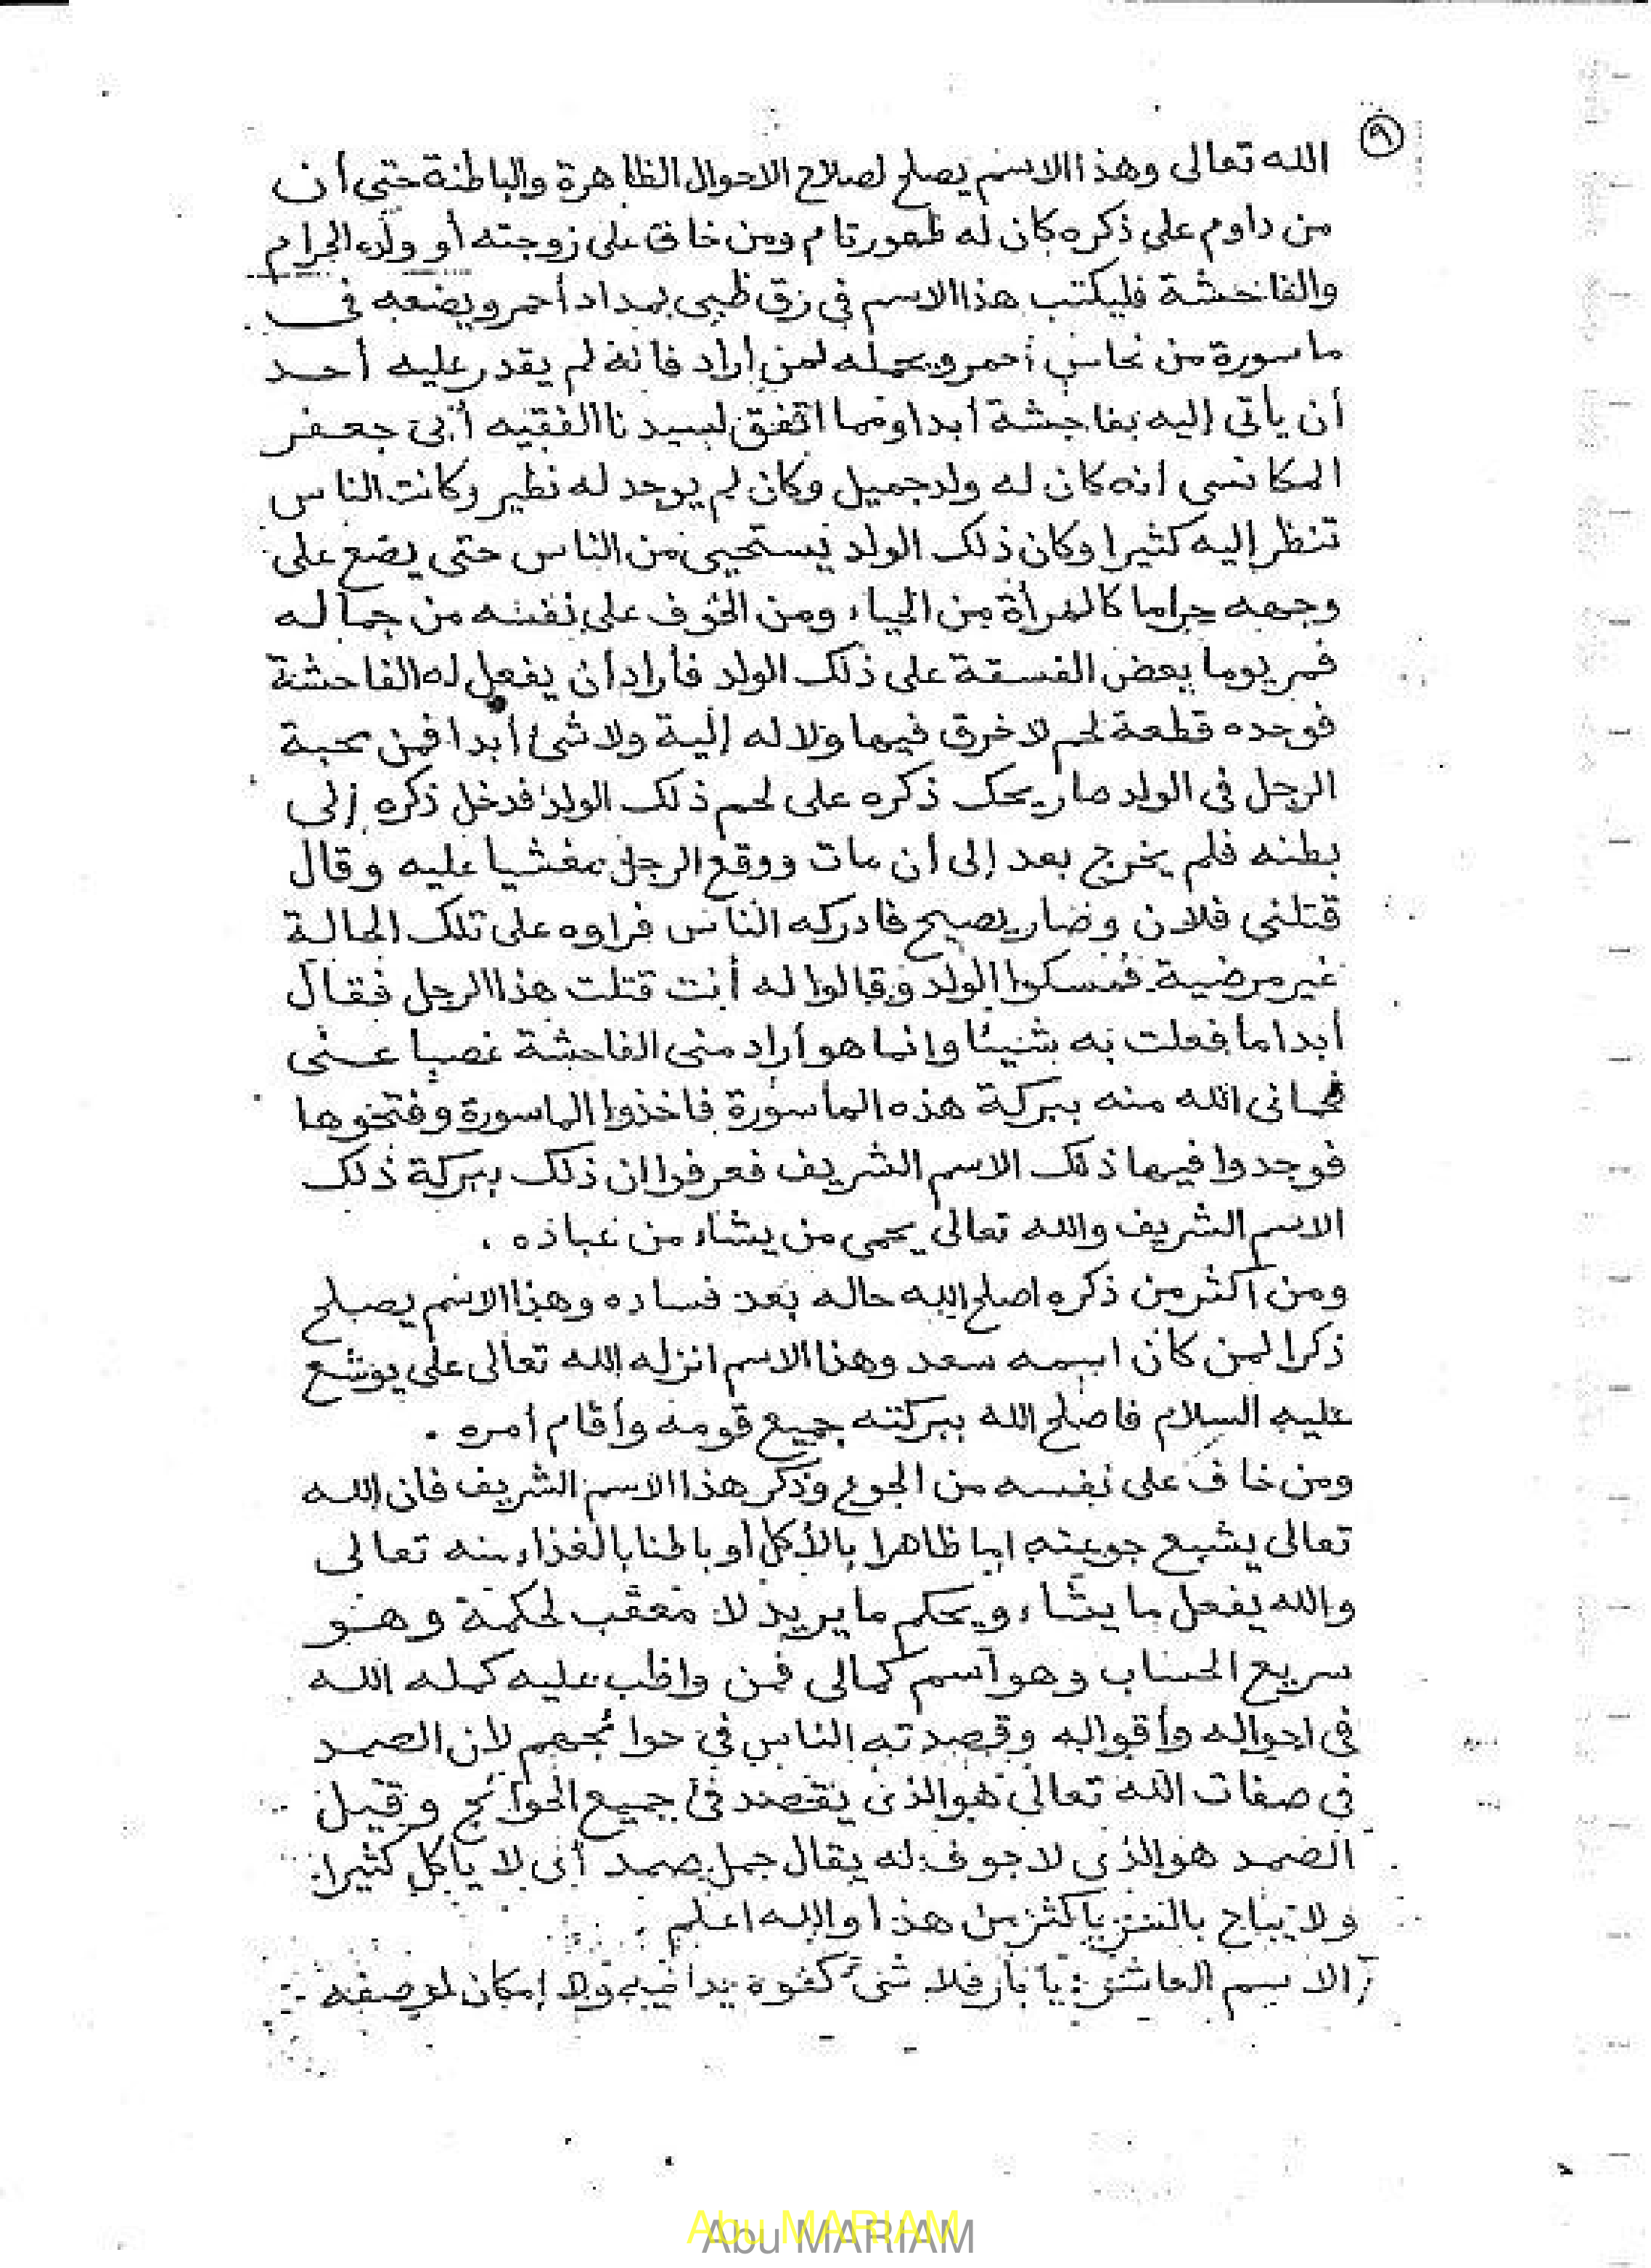 ٩
الله تعالى وهذا الاسم يصلح لصلاح الاحوال الظاهرة والباطنة حتى أن
من داوم على ذكره كان له ظهور تام ومن خاف على زوجته أو ولده الحرام
والفاحشة فليكتب هذا الاسم في رق ظبي بمداد أحمر ويضعه في
ماسورة من نحاس أحمر ويحمله لمن أراد فانه لم يقدر عليه أحد
أن يأتى إليه بفاحشة أبدا ومما اتفق لسيدنا الفقيه أبى جعفر
المكانسى انه كان له ولد جميل وكان لم يوجد له نظير وكانت الناس
تنظر إليه كثيرا وكان ذلك الولد يستحيى من الناس حتى يضع على
وجهه حراما كالمرأة من الحياء ومن الخوف على نفسه من جماله
فمر يوما بعض الفسقة على ذلك الولد فأراد أن يفعل له الفاحشة
فوجده قطعة لحم لا خرق فيها ولا له إلية ولا شئ أبدا فمن محبة
الرجل فى الولد صار يحك ذكره على لحم ذلك الولد فدخل ذكره إلى
بطنه فلم يخرج بعد إلى أن مات ووقع الرجل مغشيا عليه وقال
قتلني فلان وصار يصيح فادركه الناس فراوه على تلك الحالة
غير مرضية فمسكوا الولد وقالوا له أنت قتلت هذا الرجل فقال
أبدا ما فعلت به شيئا وإنما هو أراد منى الفاحشة غصبا عنى
فحمانى الله منه ببركة هذه الماسورة فاخذوا الماسورة وفتحوها
فوجدوا فيها ذلك الاسم الشريف فعرفوا ان ذلك ببركة ذلك
الاسم الشريف والله تعالى يحمى من يشاء من عباده .
ومن أكثر من ذكره اصلح الله حاله بعد فساده وهذا الاسم يصلح
ذكرا لمن كان اسمه سعد وهذا الاسم انزله الله تعالى على يوشع
عليه السلام فاصلح الله ببركته جميع قومه وأقام أمره .
ومن خاف على نفسه من الجوع وذكر هذا الاسم الشريف فان الله
تعالى يشبع جوعته اما ظاهرا بالأكل أو باطنا بالغذاء منه تعالى
والله يفعل ما يشاء ويحكم ما يريد لا معقب لحكمه وهو
سريع الحساب وهو آسم كمالى فمن واظب عليه كمله الله
فى احواله وأقواله وقصدته الناس فى حوائجهم لان الصمد
في صفات الله تعالى هو الذى يقصد فى جميع الحوائج وقيل
الصمد هو الذى لا جوف له يقال جمل صمد أى لا ياكل كثيرا
ولا يباح بالسر باكثر من هذا والله اعلم .
الاسم العاشر : يا بار فلا شئ كفوه يدانيه ولا إمكان لوصفه
Abu MARIAM